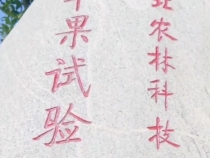 果试验
农林科技